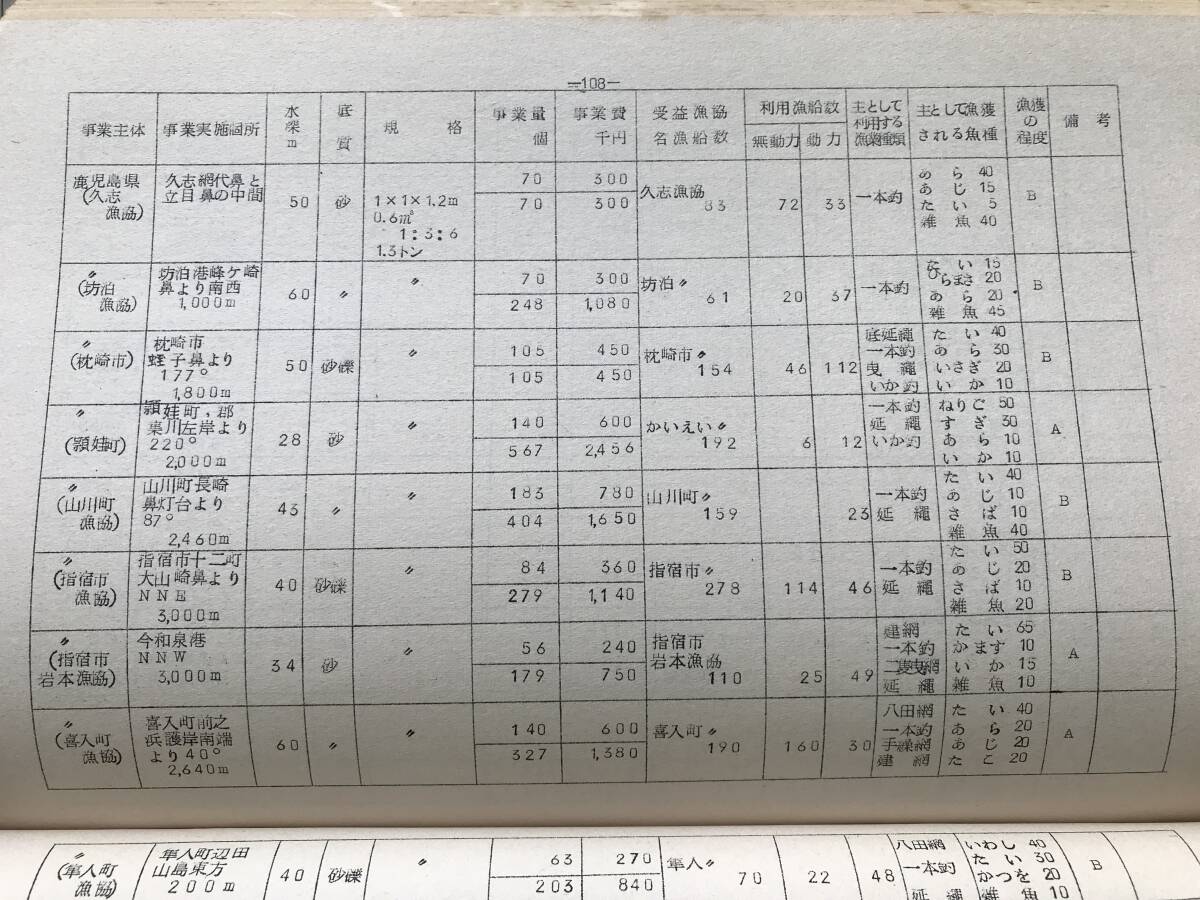 —108—
事業主体 事業実施個所 水深m 底質 規格 事業量 個 事業費 千円 受益漁協名漁船数 利用漁船数 無動力 動力 主として利用する漁業種類 主として漁獲される魚種 漁獲の程度 備考
鹿児島県 久志網代鼻と 70 300 あら 40
(久志 立目鼻の中間 50 砂 1×1×1.2m 70 300 久志漁協 83 72 33 一本釣 あじ 15 B
漁協) 0.6㎥ たい 5
1:3:6 雑魚 40
1.3トン
〃 坊泊港峰ケ崎 〃 70 300 たい 15
(坊泊 鼻より南西 60 〃 248 1,080 坊泊〃 61 20 37 一本釣 ひらまさ 20 B
漁協) 1,000m あら 20
雑魚 45
〃 枕崎市 〃 105 450 底延縄 たい 40
(枕崎市) 蛭子鼻より 50 砂礫 105 450 枕崎市〃 154 46 112 一本釣 あら 30 B
177° 曳縄 いさぎ 20
1,800m いか釣 いか 10
〃 頴娃町,郡 〃 140 600 一本釣 ねりご 50
(頴娃町) 集川左岸より 28 砂 567 2,456 かいえい〃 192 6 12 延縄 すぎ 30 A
220° いか釣 あら 10
2,000m いか 10
〃 山川町長崎 〃 183 780 たい 40
(山川町 鼻灯台より 43 〃 404 1,650 山川町〃 159 23 一本釣 あじ 10 B
漁協) 87° 延縄 さば 10
2,460m 雑魚 40
〃 指宿市十二町 〃 84 360 たい 50
(指宿市 大山崎鼻より 40 砂礫 279 1,140 指宿市〃 278 114 46 一本釣 あじ 20 B
漁協) NNE 延縄 さば 10
3,000m 雑魚 20
〃 今和泉港 〃 56 240 指宿市 建網 たい 65
(指宿市 NNW 34 砂 179 750 岩本漁協 110 25 49 一本釣 かます 10 A
岩本漁協) 3,000m 二艘曳網 いか 15
延縄 雑魚 10
〃 喜入町前之 〃 140 600 八田網 たい 40
(喜入町 浜護岸南端 60 〃 327 1,380 喜入町〃 190 160 30 一本釣 あら 20 A
漁協) より40° 手繰網 あじ 20
2,640m 建網 たこ 20
〃 隼人町辺田 〃 63 270 八田網 いわし 40
(隼人町 山島東方 40 砂礫 203 840 隼人〃 70 22 48 一本釣 たい 30 B
漁協) 200m かつを 20
延縄 雑魚 10